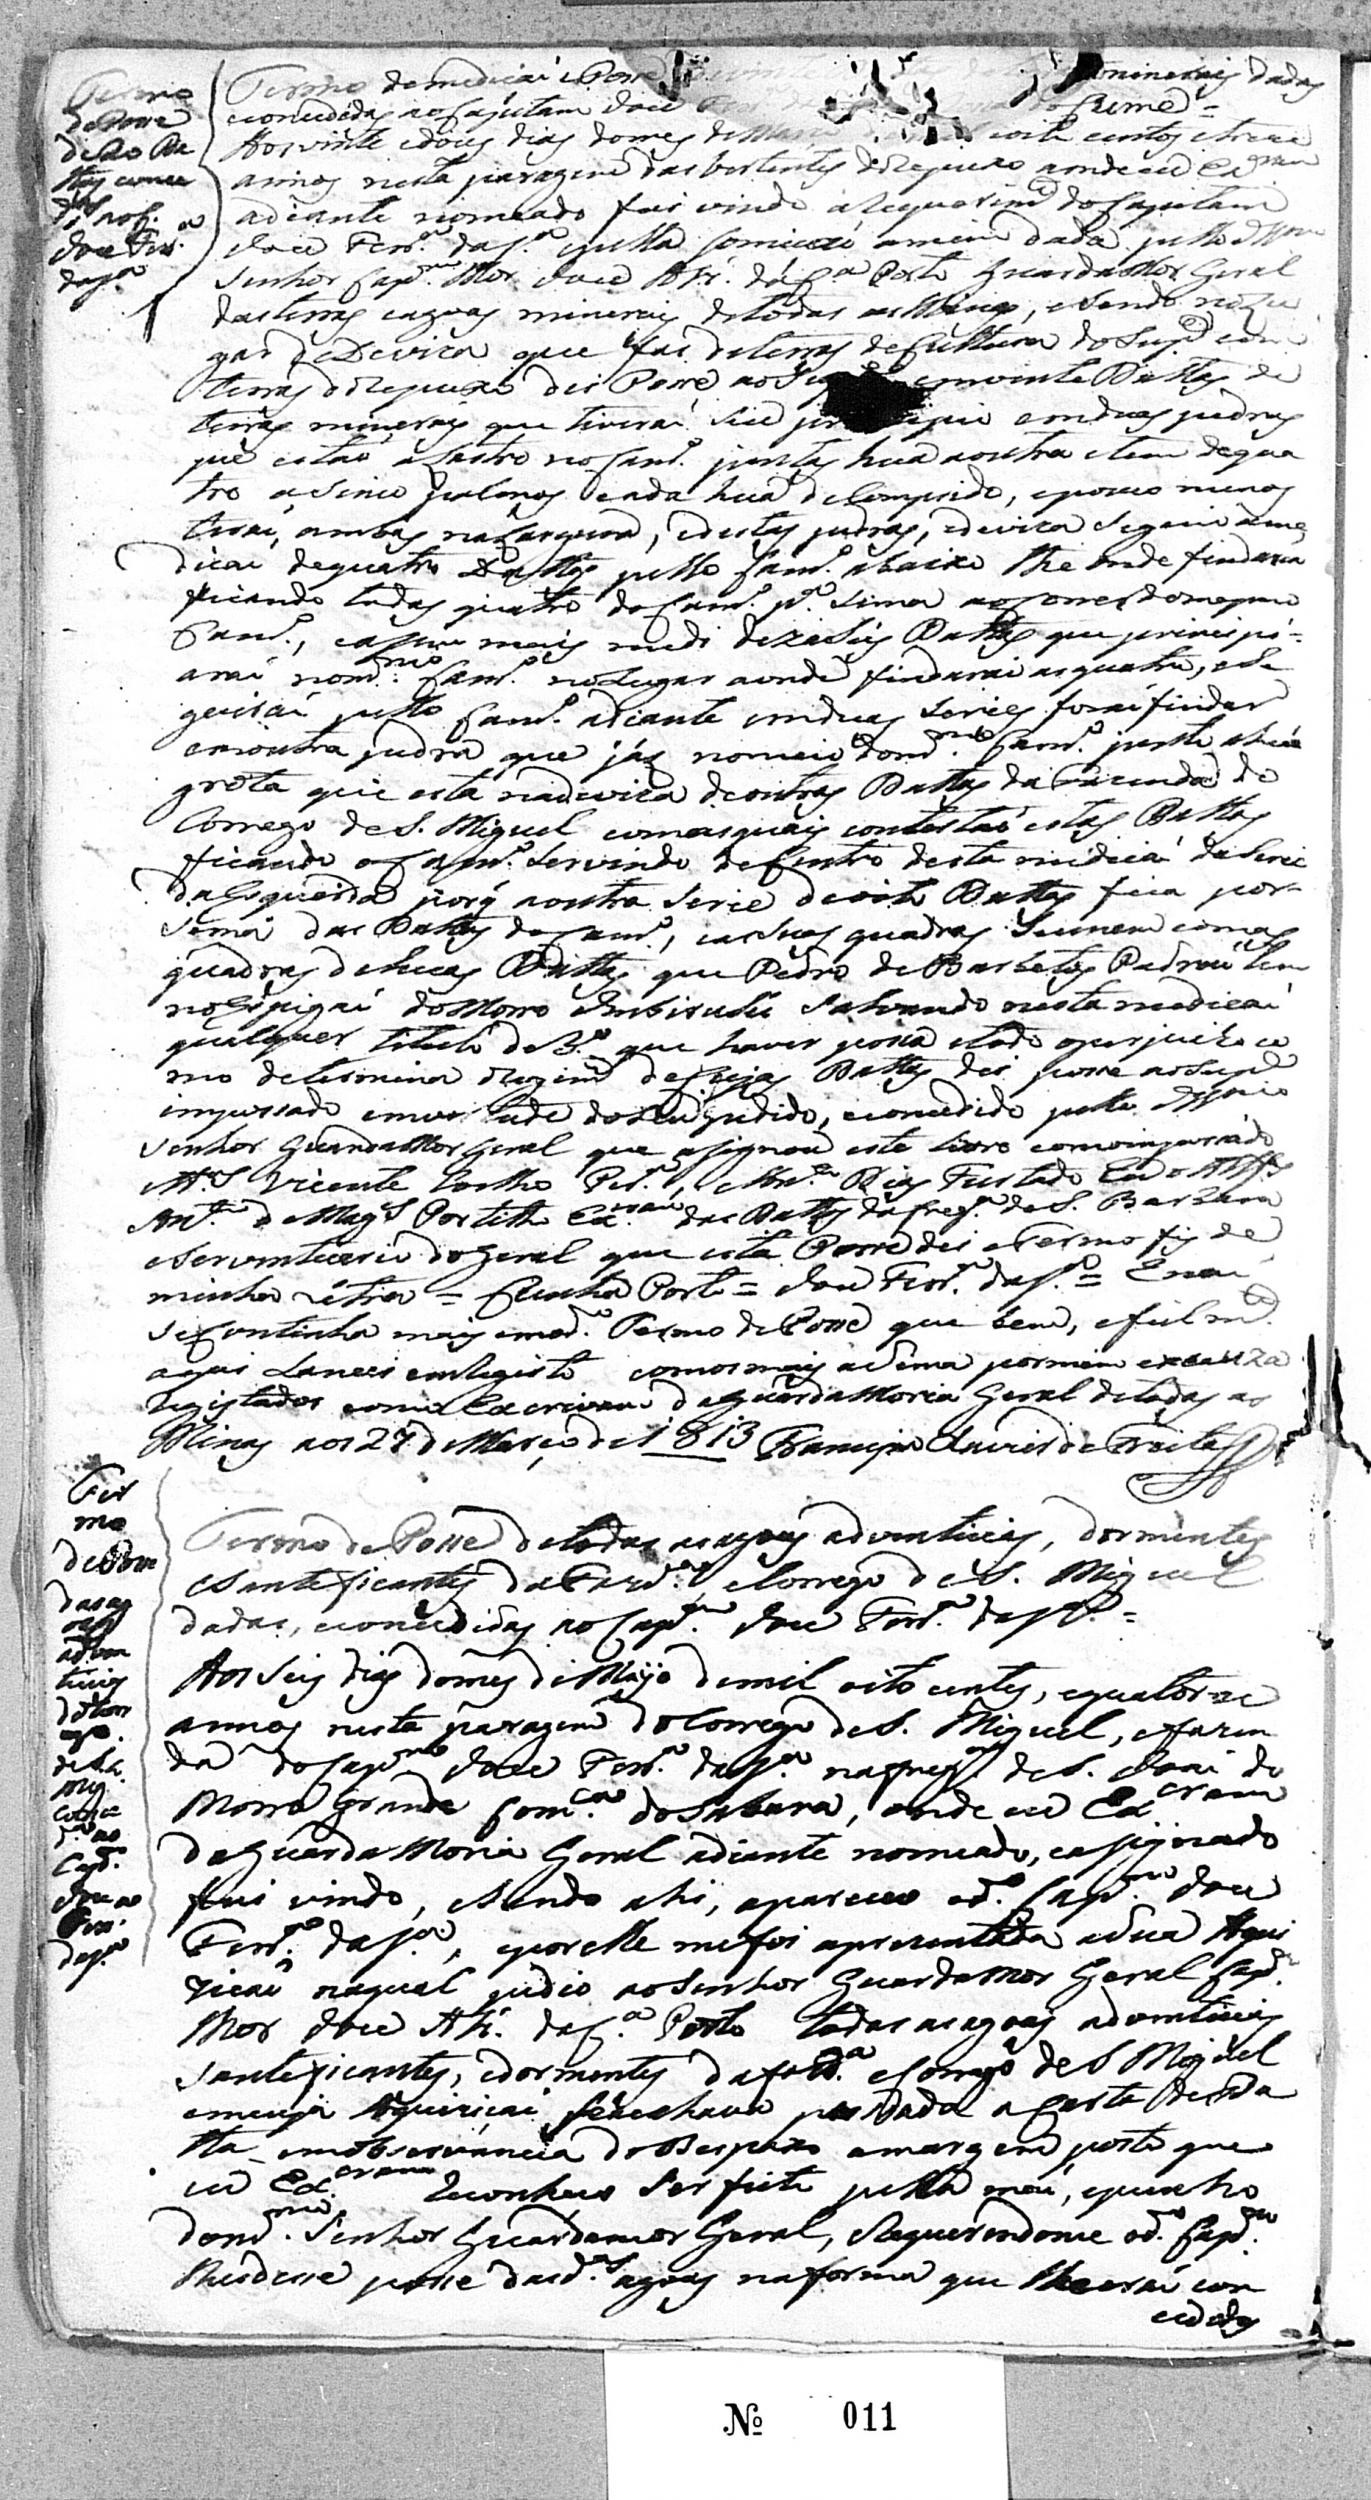 Termo
de Posse
de 20 Da
ttas conce
didas ao C.
Joze Ferr.ª
da S.ª
Termo de mediçaõ e Posse mineraes dadas
econcedidas ao Capitam Joze do Cume =
Aos vinte edous dias domes de Março oito centos etreze
annos nesta paragem das vertentes do Repuxo aonde eu Es.cram
adiante nomeado fui vindo a Requerim.to do Capitam
Joze Ferr.ª da S.ª epella Comiçaõ amim dada pello Illmo
Senhor Cap.m Mor Joze Alz. da C.ª Porto Guarda Mor Geral
das terras eagoas mineraes detodas as Minas, esendo no Lu
gar da Deviza que faz de terras de Cultura do Sup.e com
terras do Repuxo dei Posse ao Sup em vinte Dattas de
terras mineraes que tiveraõ seu pr ipio em duas pedras
que estaõ a Lastro no Cam.º juntas hua aoutra etem de qua
tro a Sinco palmos cada hua de Comprido, epouco menos
teraõ, ambas na Largura, edestas pedras, edeviza Seguiu a me
diçaõ de quatro Dattas pello Cam.º abaixo the onde findaraõ
ficando todas quatro do Cam.º p.ª Sima ao Correr domesmo
Cam.º, easim mais medi dezaseis Dattas que principi=
araõ nom.mo Cam.º no Lugar aonde findaraõ as quatro, eSe
guiraõ pello Cam.º adiante em duas Series foraõ findar
em outra pedra que jaz nomeio dom.mo Cam.º junto ahua
grota que está nadeviza de outras Dattas da Fazenda do
Corrego de S. Miguel com asquais contestaõ estas Dattas
ficando o Cam.º Servindo de Centro desta mediçaõ da Serie
da Esquerda porq̃ aoutra Serie de oito Dattas fica por
Sima das Dattas do Cam.º, eas Suas quadras Seunem comas
quadras dehuas Dattas que Pedro de Barbetos Padraõ tem
no Espigaõ do Morro Imbirusú Salvando nesta mediçaõ
qualquer titulo de 3.º que haver possa etodo oprejuizo co
mo determina o Regim.to de Cujas Dattas dei posse ao Sup.e
impossado em virtude do Seu pedido, econcedido pello Illmo
Senhor Guarda Mor Geral que asignou este livro como impossado
At.s Vicente Coelho Per.ª, eAn.to Dias Furtado Eu o Alf.s
An.to de Mag.s Portilho Es.cram das Dattas da Freg.ª de S. Barbara
eServentuario do Geral que esta Posse dei eTermo fiz de
minha Letra = Cunha Porto = Joze Ferr.ª da S.ª = Enaõ
Se Continha mais em od.º Termo de Posse que bem, efielm.e
aqui Lancei em Registo comos mais aSima por mim
Registados como Escrivam da Guarda Moria Geral de todas as
Minas aos 27 de Março de 1813 Francisco Xavier de Freitas
Ter
mo
de Posse
das ag
oas
adven
ticias
do Corr
ego
de S.
Mig.
conce
d.as ao
Cap.m
Joze
Ferr.ª
da S.ª
Termo de Posse detodas as agoas adventicias, dormentes
eSantificantes da Fazd.ª, eCorrego de S. Miguel
dadas, econcedidas ao Cap.m Joze Ferr.ª da S.ª =
Aos Seis dias domes de Mayo demil oito centos, equatorze
annos nesta paragem do Corrego de S. Miguel, efazen
da do Cap.m Joze Ferr.ª da S.ª na Freg.ª de S. Joaõ do
Morro Grande Com.ca do Sabara, onde eu Es.cram
da Guarda Moria Geral adiante nomeado, easignado
fui vindo, eSendo ahi, apareceo od.º Cap.m Joze
Ferr.ª da S.ª, epor elle mefoi aprezentada aSua Aqui
ziçaõ naqual pedio ao Senhor Guarda Mor Geral Cap.m
Mor Joze Alz. da C.ª Porto todas as agoas adventicias
Santificantes, edormentes da fazd.ª eCorrego de S Miguel
emcuja Aquiziçaõ Seachava passada a Carta de Da
tta emobservancia do Despaxo amargem posto que
eu Es.cram Reconheço Ser feito pella maõ, epunho
dom.mo Senhor Guardamor Geral, eRequerendome od.º Cap.m
lhe desse posse das d.as agoas na forma que lhe eraõ con
cedidas
Nº 011